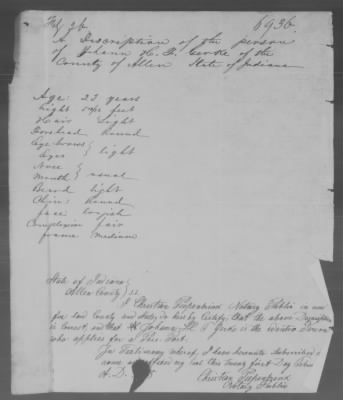 Feb 26. 6936.
A Discription of the person
of Johann H. F. Gerke of the
County of Allen State of Indiana
Age: 23 years
hight 5 feet
Hair Light
Forehead Round
Eye brows }
Eyes } light
Nose }
Mouth } usual
Beard light
Chin: Round
face longish
Complexion fair
frame medium
State of Indiana }
Allen County } SS
I Christian Notary Public in and
for said County and State, do hereby Certify that the above Discription
is Correct, and that Johann H. F. Gerke is the Person
who applies for a Pass Port.
In Testimony whereof, I have hereunto Subscribed
name and seal this Twenty first Day
A.D.
Christian
Notary Public